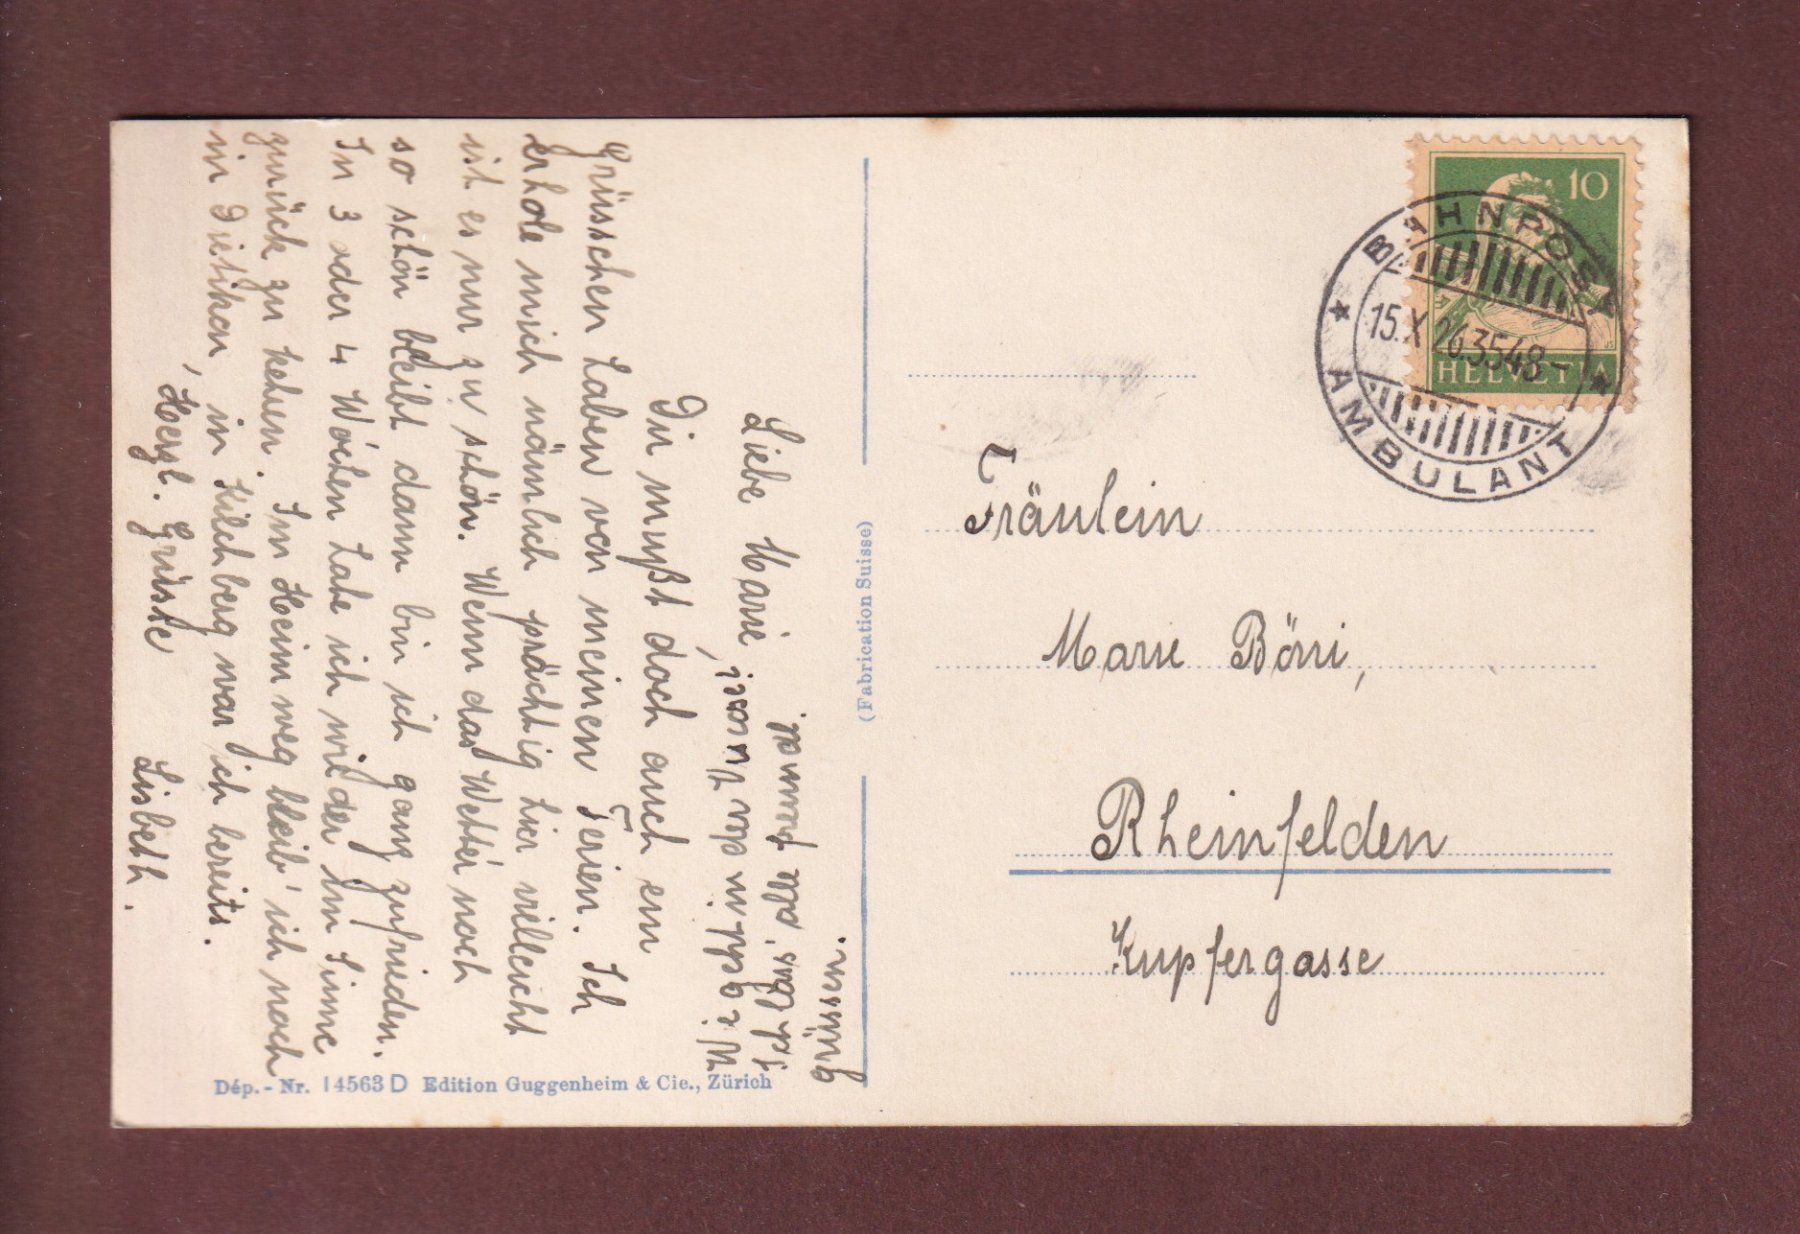 Liebe Marie,
Du mußt doch auch ein
Grüsschen haben von meinen Ferien. Ich
erhole mich nämlich prächtig hier vielleicht
ist es nur zu schön. Wenn das Wetter noch
so schön bleibt dann bin ich ganz zufrieden.
In 3 oder 4 Wochen habe ich wieder im Sinne
zurück zu kehren. Im Heimweg bleib' ich noch
in Dietikon, in Kilchberg war ich bereits.
Herzl. Grüsse
Lisbeth.
in der
Ich lass' alle freundl.
grüssen.
(Fabrication Suisse)
Dép. - Nr. 14563 D Edition Guggenheim & Cie., Zürich
10
HELVETIA
BAHNPOST
15.X.26.3548-
AMBULANT
Fräulein
Marie Börri,
Rheinfelden
Kupfergasse